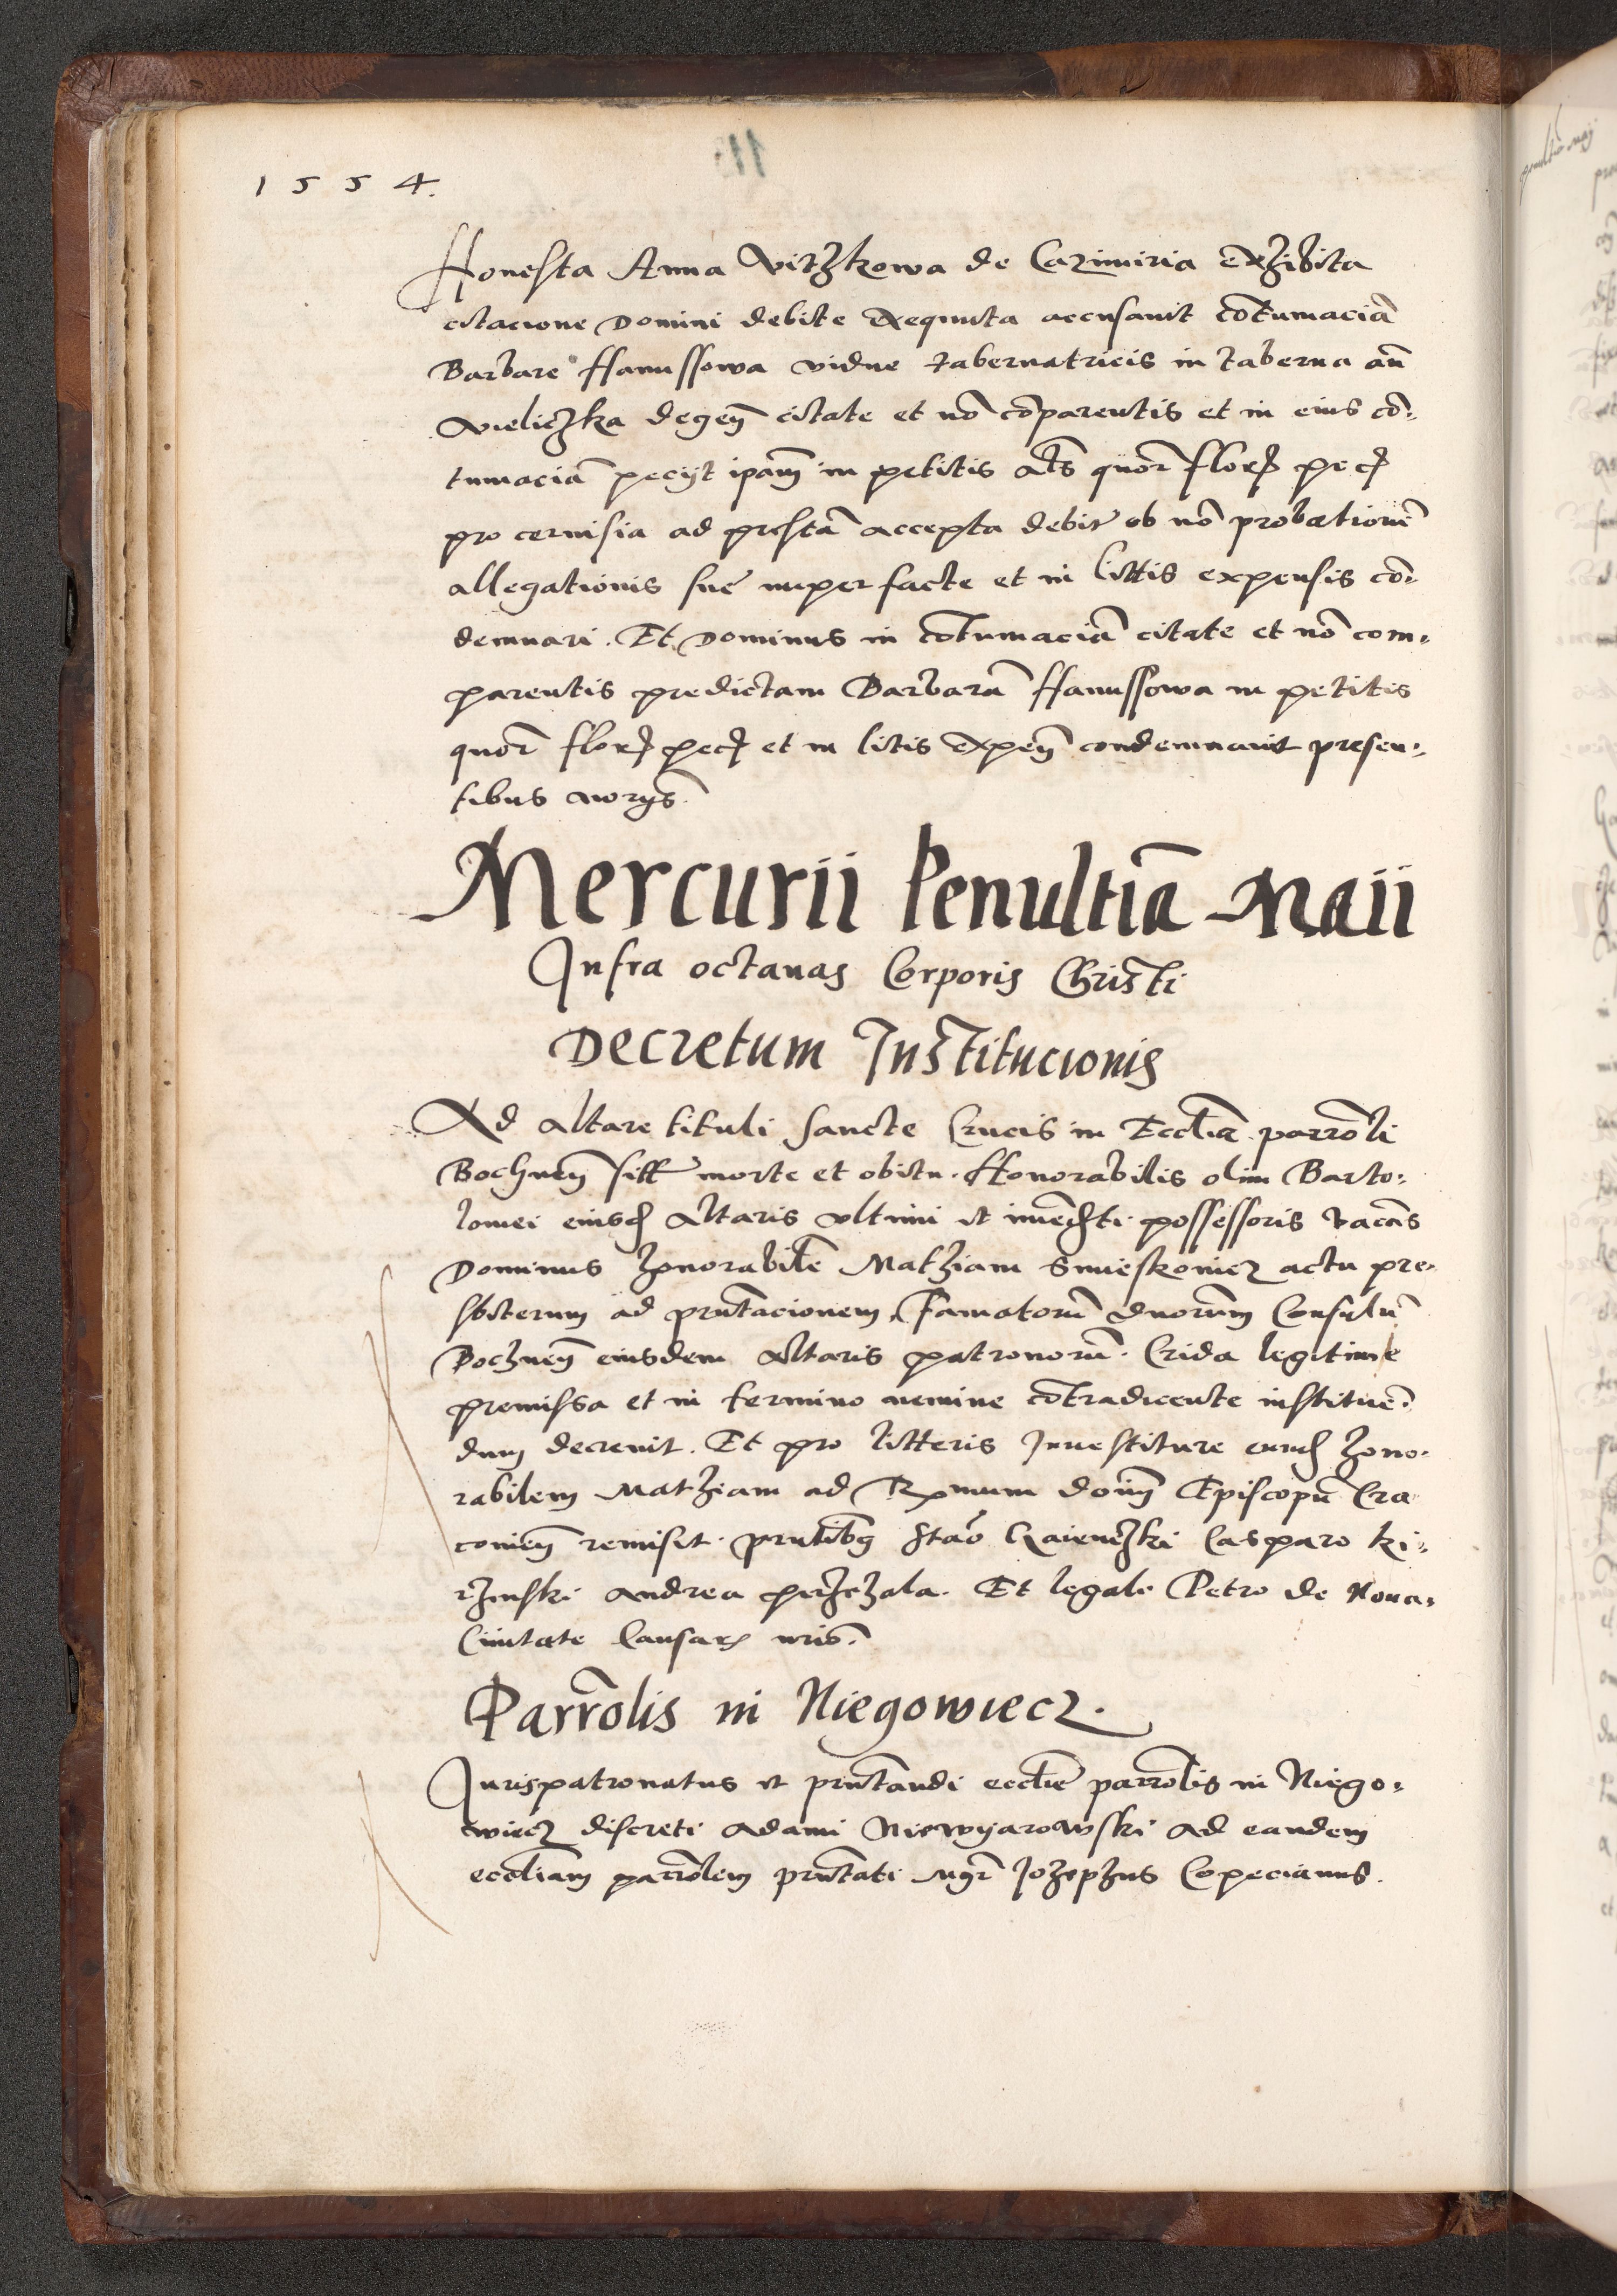 1554.
Honesta Anna Vitzkowa de Cazimiria exhibita
citacione Domini debite exequuta accusauit cõtumaciã
Barbare Hanussowa vidue tabernatricis in taberna añ
Wieliczka degeñ citate et nõ cõparentis et in eius cõ-
tumaciã pecijt ipam̃ in petitis quor̃ flor pec
pro ceruisia ad prestã accepta debit ob nõ probationẽ
allegationis sue nuper facte et in littis expensis cõ-
demnari. Et Dominus in cõtumaciã citate et nõ com-
parentis predictam Barbarã Hanussowa in petitis
quor̃ flor pec et in litis expeñ condemnauit presen-
tibus
Mercurii Penultiã Maii
Infra octauas Corporis Christi
Decretum Institucionis
Ad altare tituli sancte Crucis in Eccliã parrõli
Bochneñ morte et obitu Honorabilis olim Barto-
lomei eiusd altaris vltimi et possessoris vacãs
Dominus honorabilẽ Mathiam Smieskouicz actu pre-
sbiterum ad pñtacionem Famatorũ dnorum̃ Consulũ
Bochneñ eiusdem altaris patronorũ. Crida legitime
premissa et in termino nemine cõtradicente instituẽ-
dum decreuit. Et pro litteris Inuestiture eund hono-
rabilem Mathiam ad Rmum doim̃ Episcopũ Cra
couieñ remisit. pñtibus Stão Kaienczki Casparo Ki-
rzinski Andrea perzchala. Et legale Petro de Noua-
Ciuitate Causar nrio.
Parrõlis in Niegowiecz.
Jurispatronatus et pñtandi ecclie parrõlis in Niego-
wiecz discreti Adami Niewyarowski ad eandem
eccliam parrõlem pñtati Mgr̃ Johephus Copecianus.